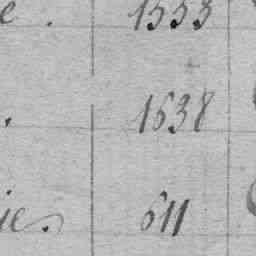 e. 1533
. 1638
ie. 611